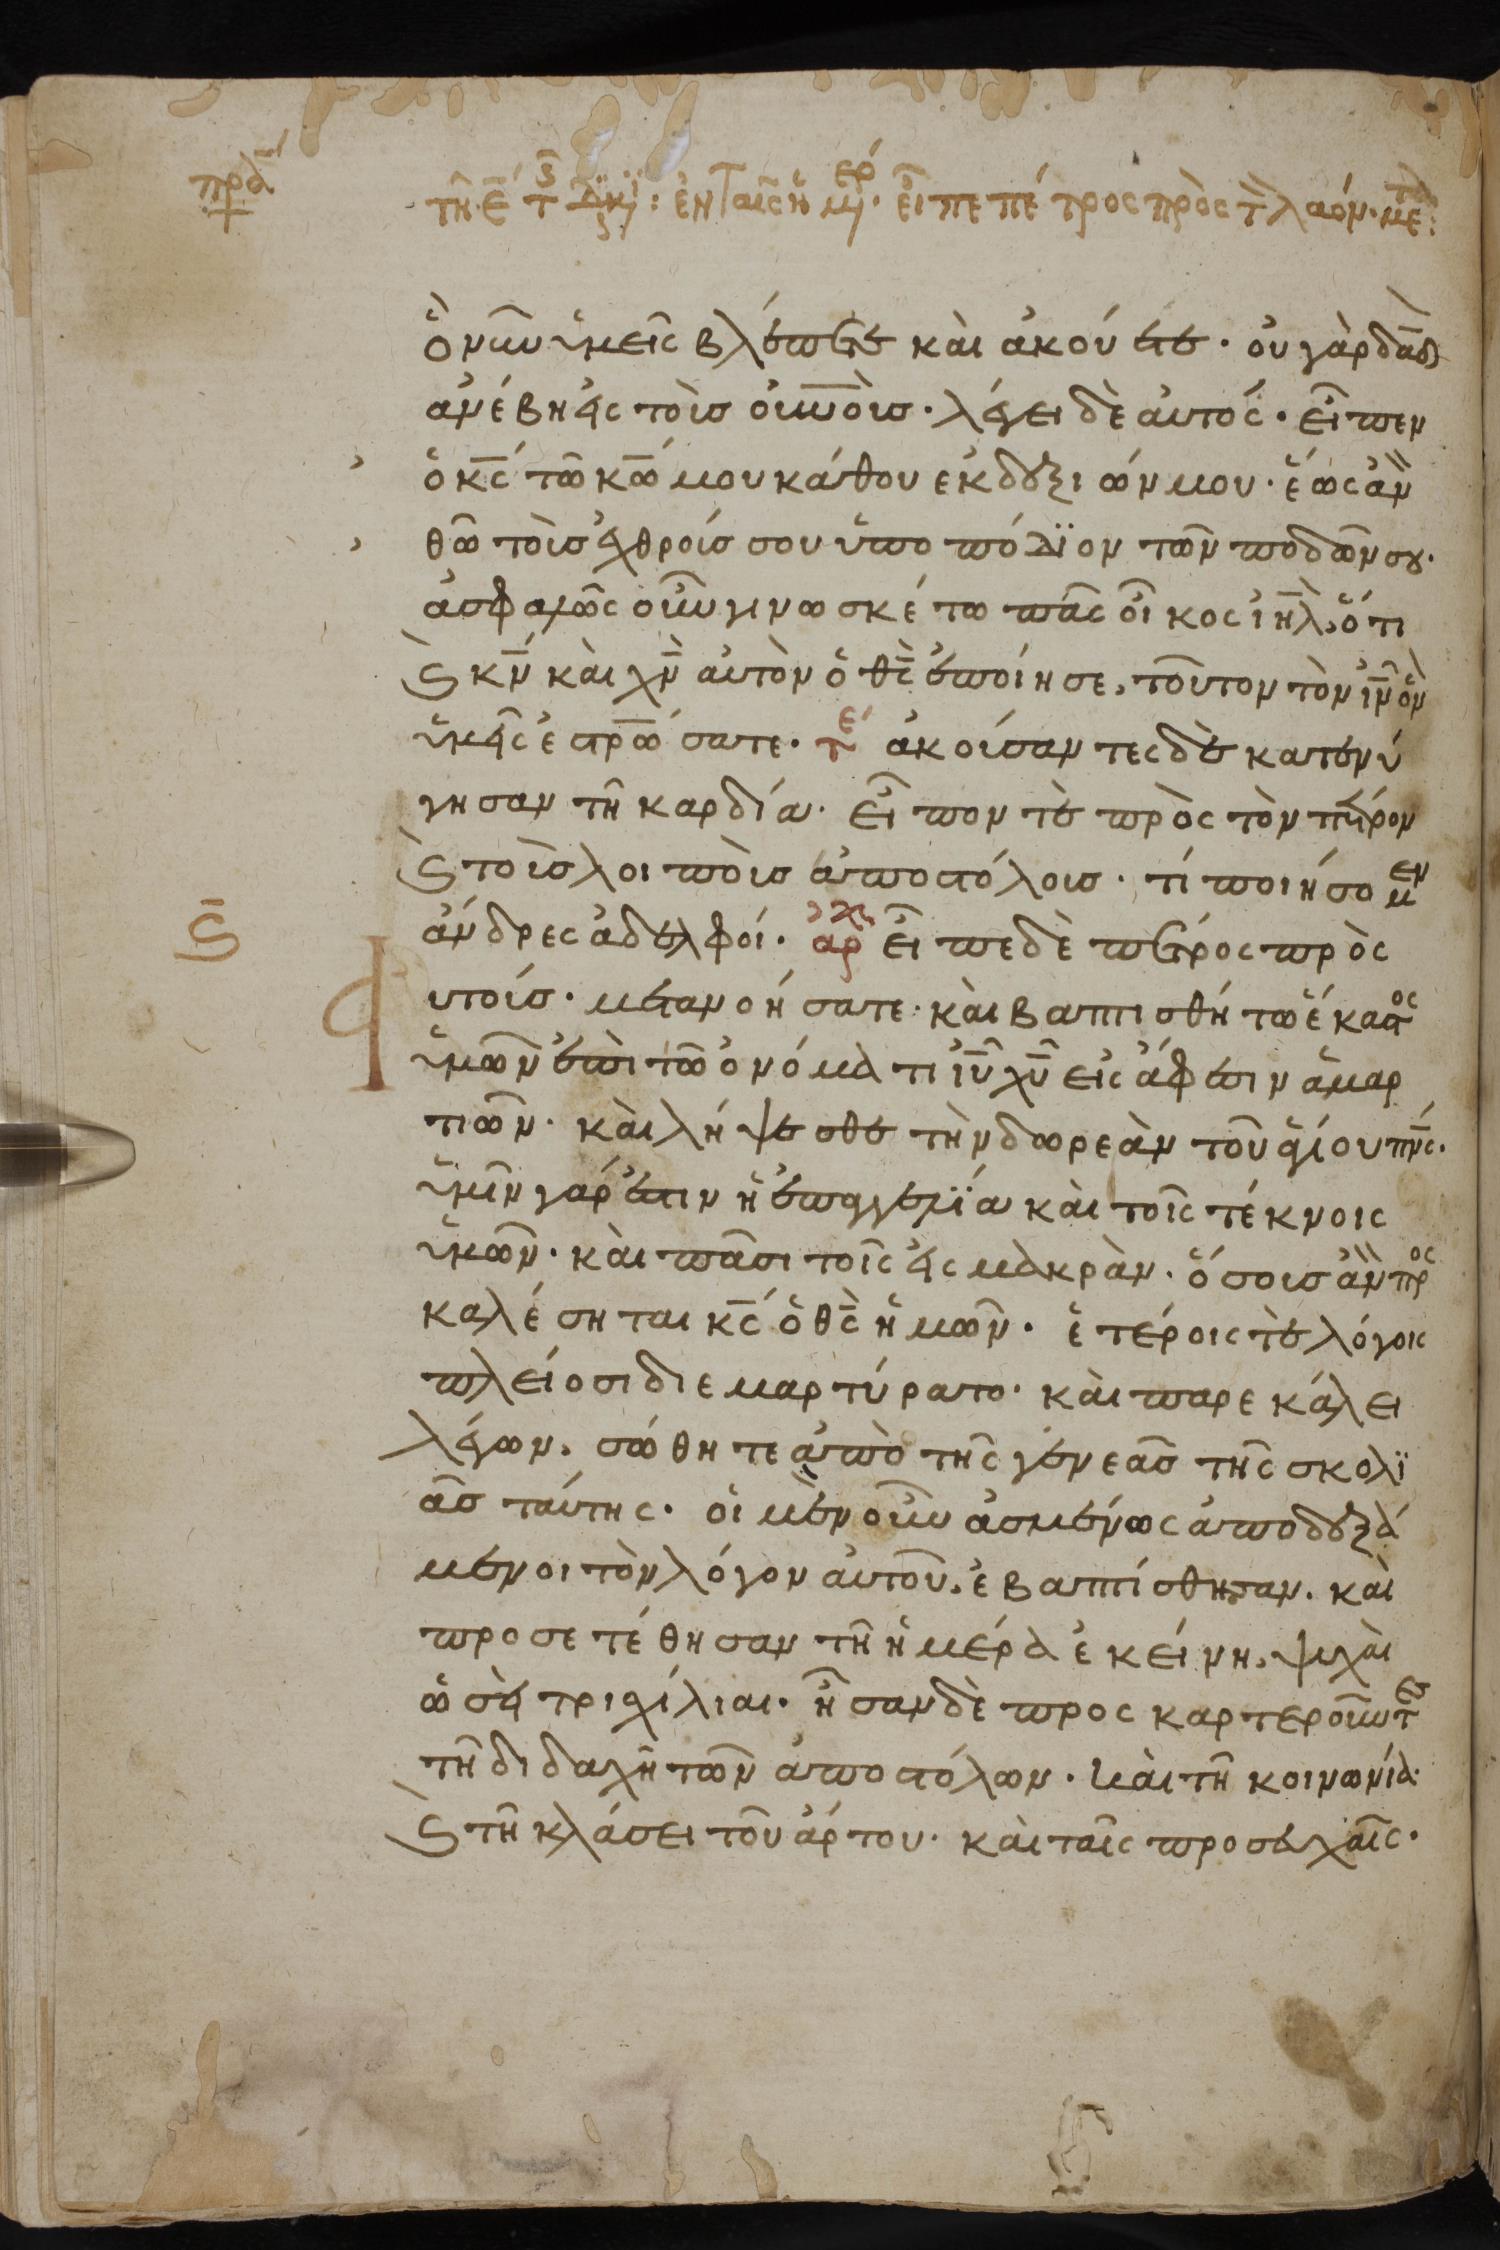 πρά
τῆ ε̄ τ̄ς Διακι: ἐν ταῖς ἡμέρ. εἶπε πέτρος πρὸς τ̀ λαόν. με τὸ:
ὃ νῦν ὑμεῖς βλέπετε καὶ ἀκούετε. οὐ γὰρ δᾱδ
ἀνέβη εἰς τοὺς οὐνοὺς. λέγει δὲ αὐτός. εἶπεν
ὁ κ̄ς τῶ κ̄ω μου κάθου ἐκ δεξιῶν μου. ἕως ἂν
θῶ τοὺς ἐχθρούς σου ὑποπόδϊον τῶν ποδῶν σου.
ἀσφαλῶς οὖν γινωσκέτω πᾶς οἶκος ἰη̄λ, ὅτι
καὶ κ̄ν καὶ χ̄ν αὐτὸν ὁ θ̄ς ἐποίησε, τοῦτον τὸν ἰ̄ν ὃν
ὑμεῖς ἐστρω̄σατε. τε ἀκούσαντες δὲ κατενύ
γησαν τῆ καρδία. εἶπον τὲ πρὸς τὸν πέτρον
καὶ τοὺς λοιποὺς ἀποστόλους. τί ποιήσομεν
ἄνδρες ἀδελφοί. ἀρχ εἶπε δὲ πέτρος πρὸς
ς̄
αὐτούς. μετανοήσατε. καὶ βαπτισθήτω ἕκαστος
ὑμῶν ἐπὶ τῶ ὀνόματι ἰ̄υ χ̄υ εἰς ἄφεσιν ἁμαρ
τιῶν. καὶ λήψεσθε τὴν δωρεὰν τοῦ ἁγίου πν̄ς.
ὑμῖν γάρ ἐστιν ἡ ἐπαγγελΐα καὶ τοῖς τέκνοις
ὑμῶν. καὶ πᾶσι τοῖς εἰς μακρὰν. ὅσους ἂν προς
καλέσηται κ̄ς ὁ θ̄ς ἡμῶν. ἑτέροις τὲ λόγοις
πλείοσι διεμαρτύρατο. καὶ παρεκάλει
λέγων. σώθητε ἀπὸ τῆς γενεᾶς τῆς σκολϊ
ᾶς ταύτης. οἱ μὲν οὖν ἀσμένως ἀποδεξά
μενοι τὸν λόγον αὐτοῦ, ἐβαπτίσθησαν. καὶ
προσετέθησαν τῆ ἡμέρα ἐκείνη, ψυχαὶ
ὡσεὶ τριχίλιαι. ἦσαν δὲ προσκαρτεροῦντες
τῆ διδαχῆ τῶν ἀποστόλων. καὶ τῆ κοινωνία.
καὶ τῆ κλάσει τοῦ ἄρτου. καὶ ταῖς προσευχαῖς.